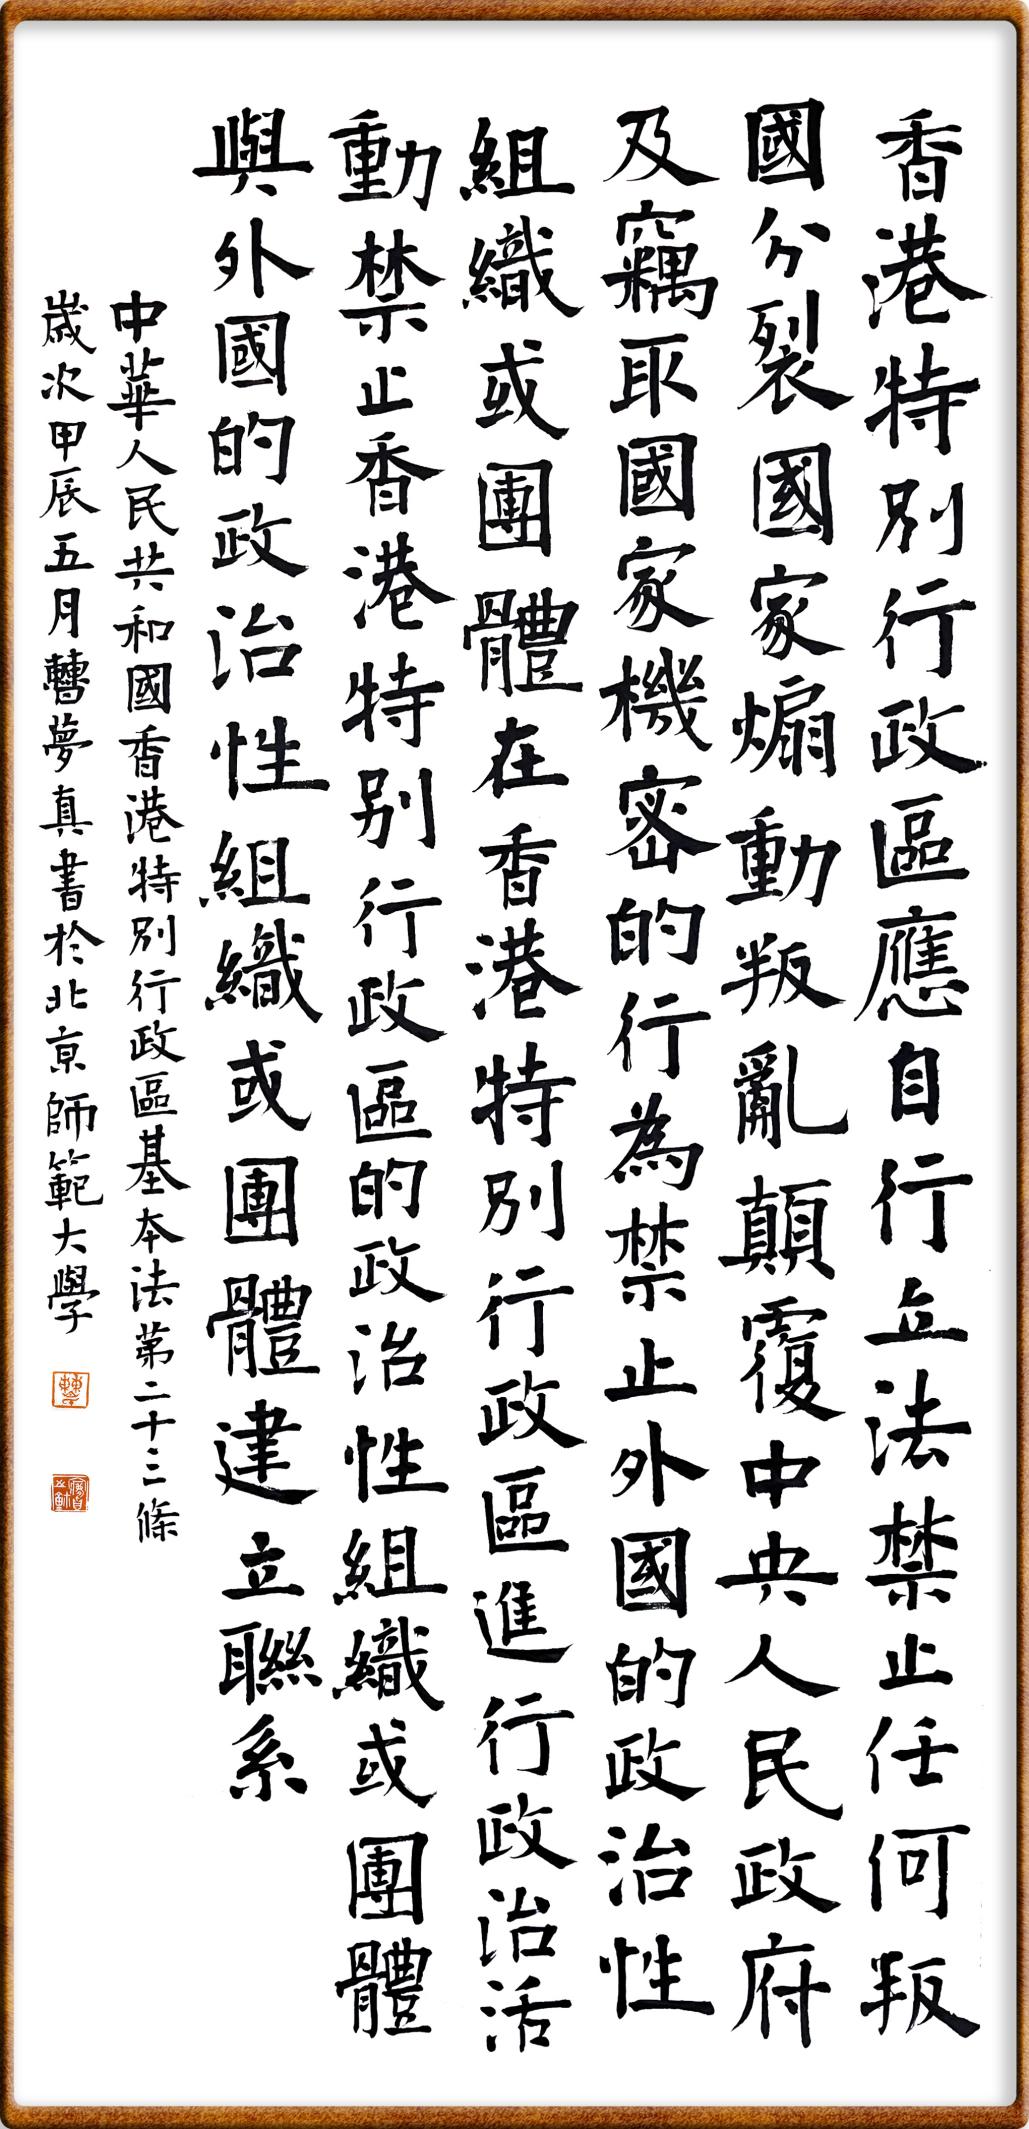 香港特別行政區應自行立法禁止任何叛
國分裂國家煽動叛亂顛覆中央人民政府
及竊取國家機密的行為禁止外國的政治性
組織或團體在香港特別行政區進行政治活
動禁止香港特別行政區的政治性組織或團體
與外國的政治性組織或團體建立聯系
中華人民共和國香港特別行政區基本法第二十三條
歲次甲辰五月曹夢真書於北京師範大學